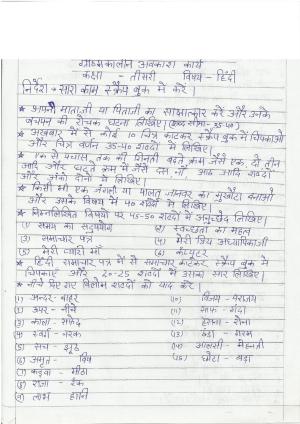 ग्रीष्मकालीन अवकाश कार्य
कक्षा - तीसरी विषय - हिंदी
निर्देश → सारा काम स्क्रैप बुक में करें।
* अपनी माताजी या पिताजी का साक्षात्कार करें और उनके
बचपन की रोचक घटना लिखिए। (शब्द सीमा- 35-40)
* अखबार में से कोई 10 चित्र काटकर स्क्रैप बुक में चिपकाओ
और चित्र वर्णन 35-40 शब्दों में लिखिए।
* एक से पचास तक की गिनती बढ़ते क्रम जैसे एक, दो तीन
आदि और घटते क्रम में जैसे दस, नौ, आठ आदि शब्दों
और अंकों दोनों में लिखिए।
* किसी भी एक जंगली या पालतू जानवर का मुखौटा बनाओ
और उसके विषय में 40 शब्दों में लिखिए।
* निम्नलिखित विषयों पर 45-50 शब्दों में अनुच्छेद लिखिए।
(1) समय का सदुपयोग (2) स्वच्छता का महत्व
(3) समाचार पत्र (4) मेरी प्रिय अध्यापिकाजी
(5) मेरी प्यारी माँ (6) कंप्यूटर
* हिंदी समाचार पत्र में से समाचार काटकर स्क्रैप बुक में
चिपकाएँ और 20-25 शब्दों में उसका सार लिखिए।
* नीचे दिए गए विलोम शब्दों को याद करें।
(1) अन्दर - बाहर (10) विजय - पराजय
(2) ऊपर - नीचे (11) साफ - गंदा
(3) काला - सफेद (12) हँसना - रोना
(4) स्वर्ग - नरक (13) ठंडा - गरम
(5) सच - झूठ (14) आलसी - मेहनती
(6) अमृत - विष (15) छोटा - बड़ा
(7) कड़वा - मीठा
(8) राजा - रंक
(9) लाभ हानि